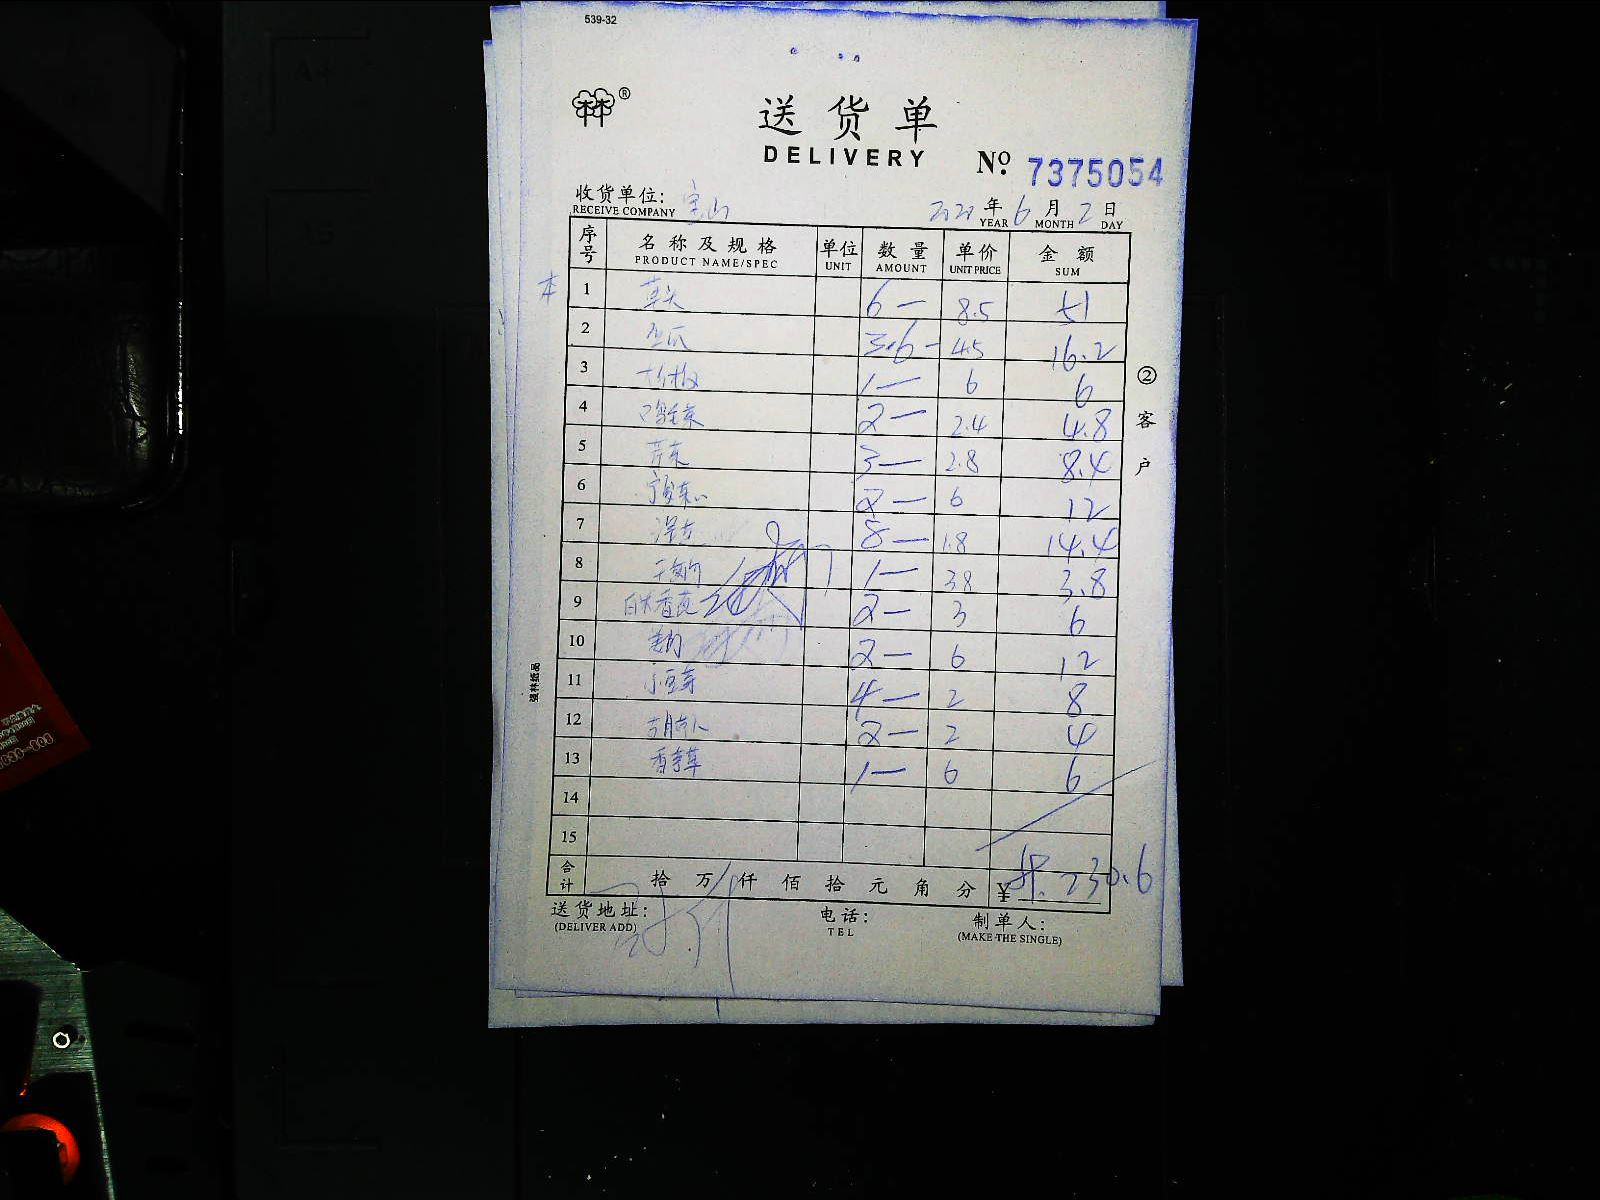 539-32
送货单
DELIVERY
No. 7375054
收货单位: 宝山
RECEIVE COMPANY
年 6 月 2 日
YEAR MONTH DAY
序号 名称及规格 单位 数量 单价 金额
PRODUCT NAME/SPEC UNIT AMOUNT UNIT PRICE SUM
1 草头 6— 8.5 51
2 3.6— 4.5 16.2
3 1— 6 6
4 鸡毛菜 2— 2.4 4.8
5 芹菜 3— 2.8 8.4
6 2— 6 12
7 洋葱 8— 1.8 14.4
8 1— 3.8 3.8
9 白米香苋 2— 3 6
10 2— 6 12
11 小豆芽 4— 2 8
12 胡萝卜 2— 2 4
13 香芋草 1— 6 6
14
15
合计 拾 万 仟 佰 拾 元 角 分 ¥ 230.6
送货地址: 电话: 制单人:
(DELIVER ADD) TEL (MAKE THE SINGLE)
②客户
强林纸品
本